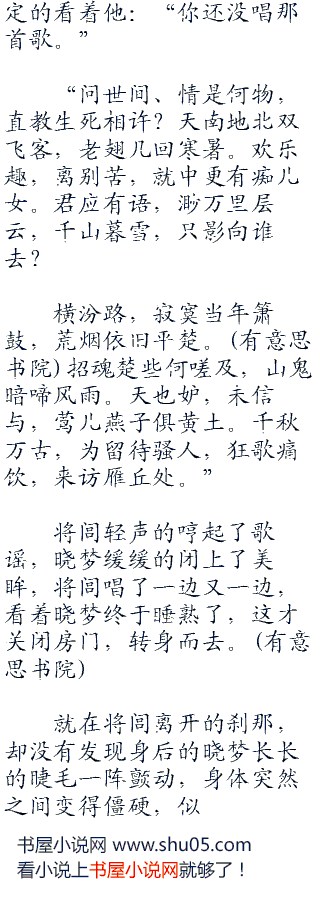 定的看着他：“你还没唱那
首歌。”
“问世间、情是何物，
直教生死相许？天南地北双
飞客，老翅几回寒暑。欢乐
趣，离别苦，就中更有痴儿
女。君应有语，渺万里层
云，千山暮雪，只影向谁
去？
横汾路，寂寞当年箫
鼓，荒烟依旧平楚。(有意思
书院)招魂楚些何嗟及，山鬼
暗啼风雨。天也妒，未信
与，莺儿燕子俱黄土。千秋
万古，为留待骚人，狂歌痛
饮，来访雁丘处。”
将闾轻声的哼起了歌
谣，晓梦缓缓的闭上了美
眸，将闾唱了一边又一边，
看着晓梦终于睡熟了，这才
关闭房门，转身而去。(有意
思书院)
就在将闾离开的刹那，
却没有发现身后的晓梦长长
的睫毛一阵颤动，身体突然
之间变得僵硬，似
书屋小说网 www.shu05.com
看小说上书屋小说网就够了！